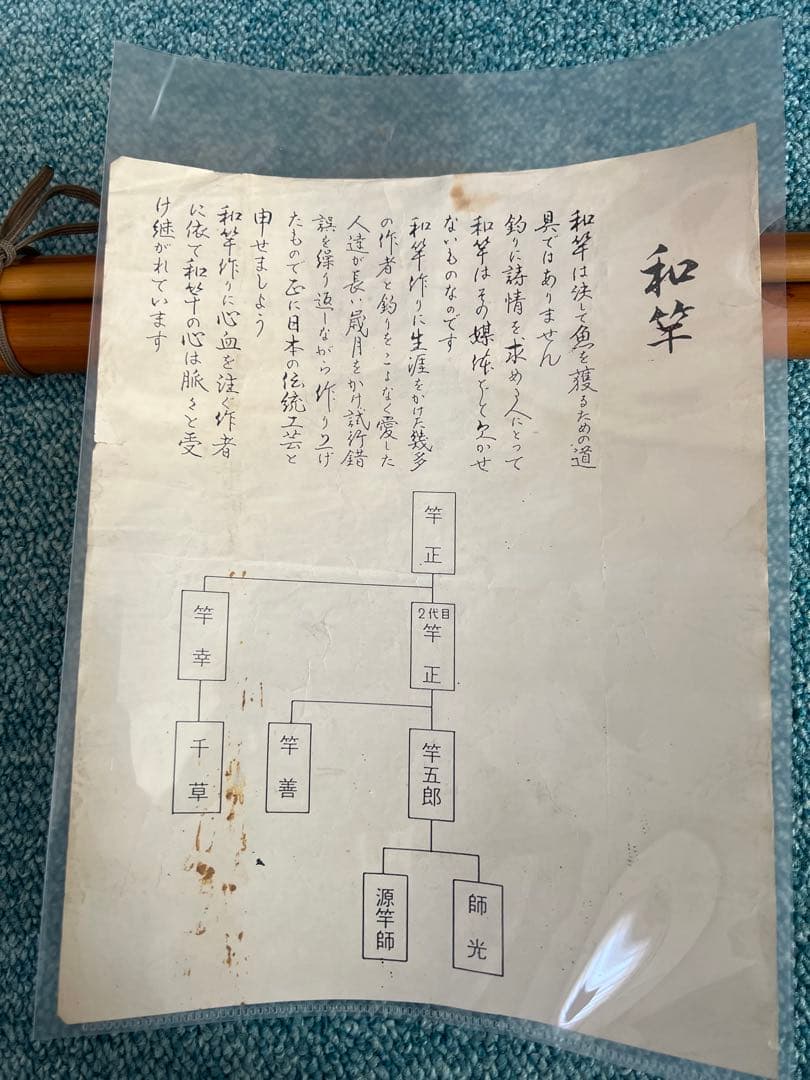 和竿
和竿は決して魚を獲るための道
具ではありません
釣りに詩情を求める人にとって
和竿はその媒体として欠かせ
ないものなのです
和竿作りに生涯をかけた幾多
の作者と釣りをこよなく愛した
人達が長い歳月をかけ試行錯
誤を繰り返しながら作り上げ
たもので正に日本の伝統工芸と
申せましよう
和竿作りに心血を注ぐ作者
に依て和竿の心は脈々と受
け継がれています
竿正
2代目
竿正
竿幸
竿五郎
竿善
千草
師光
源竿師